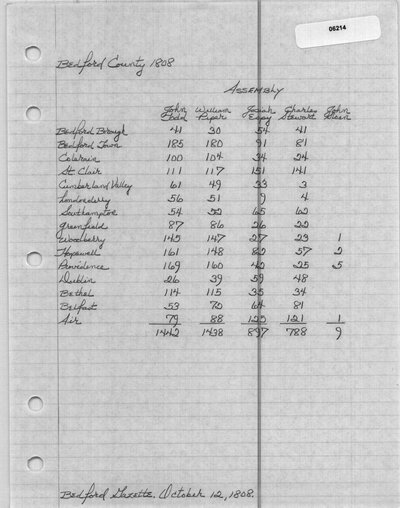 06214
Bedford County 1808
Assembly
John William Josiah Charles John
Todd Piper Espy Stewart
Bedford Borough 41 30 54 41
Bedford Town 185 180 91 81
Colerain 100 104 34 24
St Clair 111 117 151 141
Cumberland Valley 61 49 33 3
Londonderry 56 51 9 4
Southampton 54 52 65 62
Greenfield 87 86 26 22
Woodberry 145 147 27 23 1
Hopewell 161 148 82 57 2
Providence 169 160 42 25 5
Dublin 26 39 59 48
Bethel 114 115 35 34
Belfast 53 70 64 81
Air 79 88 125 121 1
1442 1438 897 788 9
Bedford Gazette. October 12, 1808.